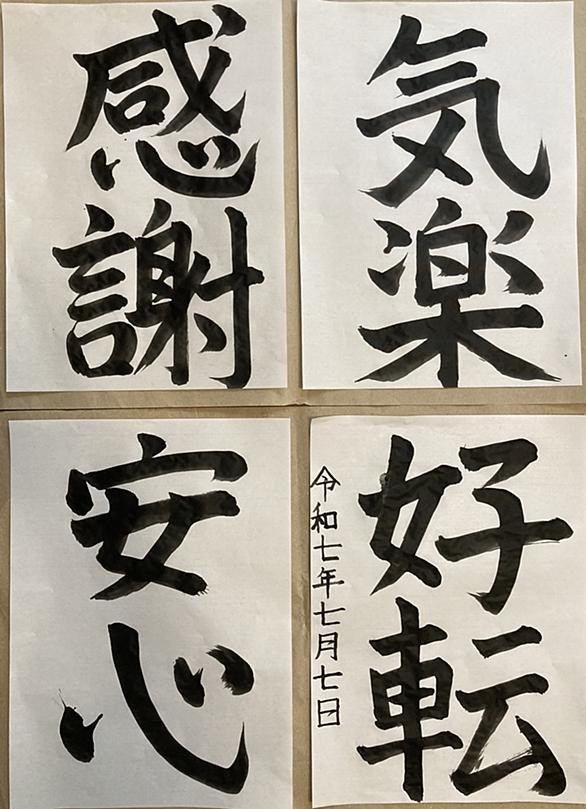 気楽
感謝
好転
令和七年七月七日
安心